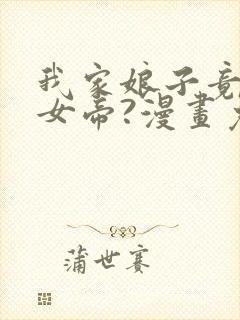 我家娘子竟
女帝?漫畫
蒲世赛